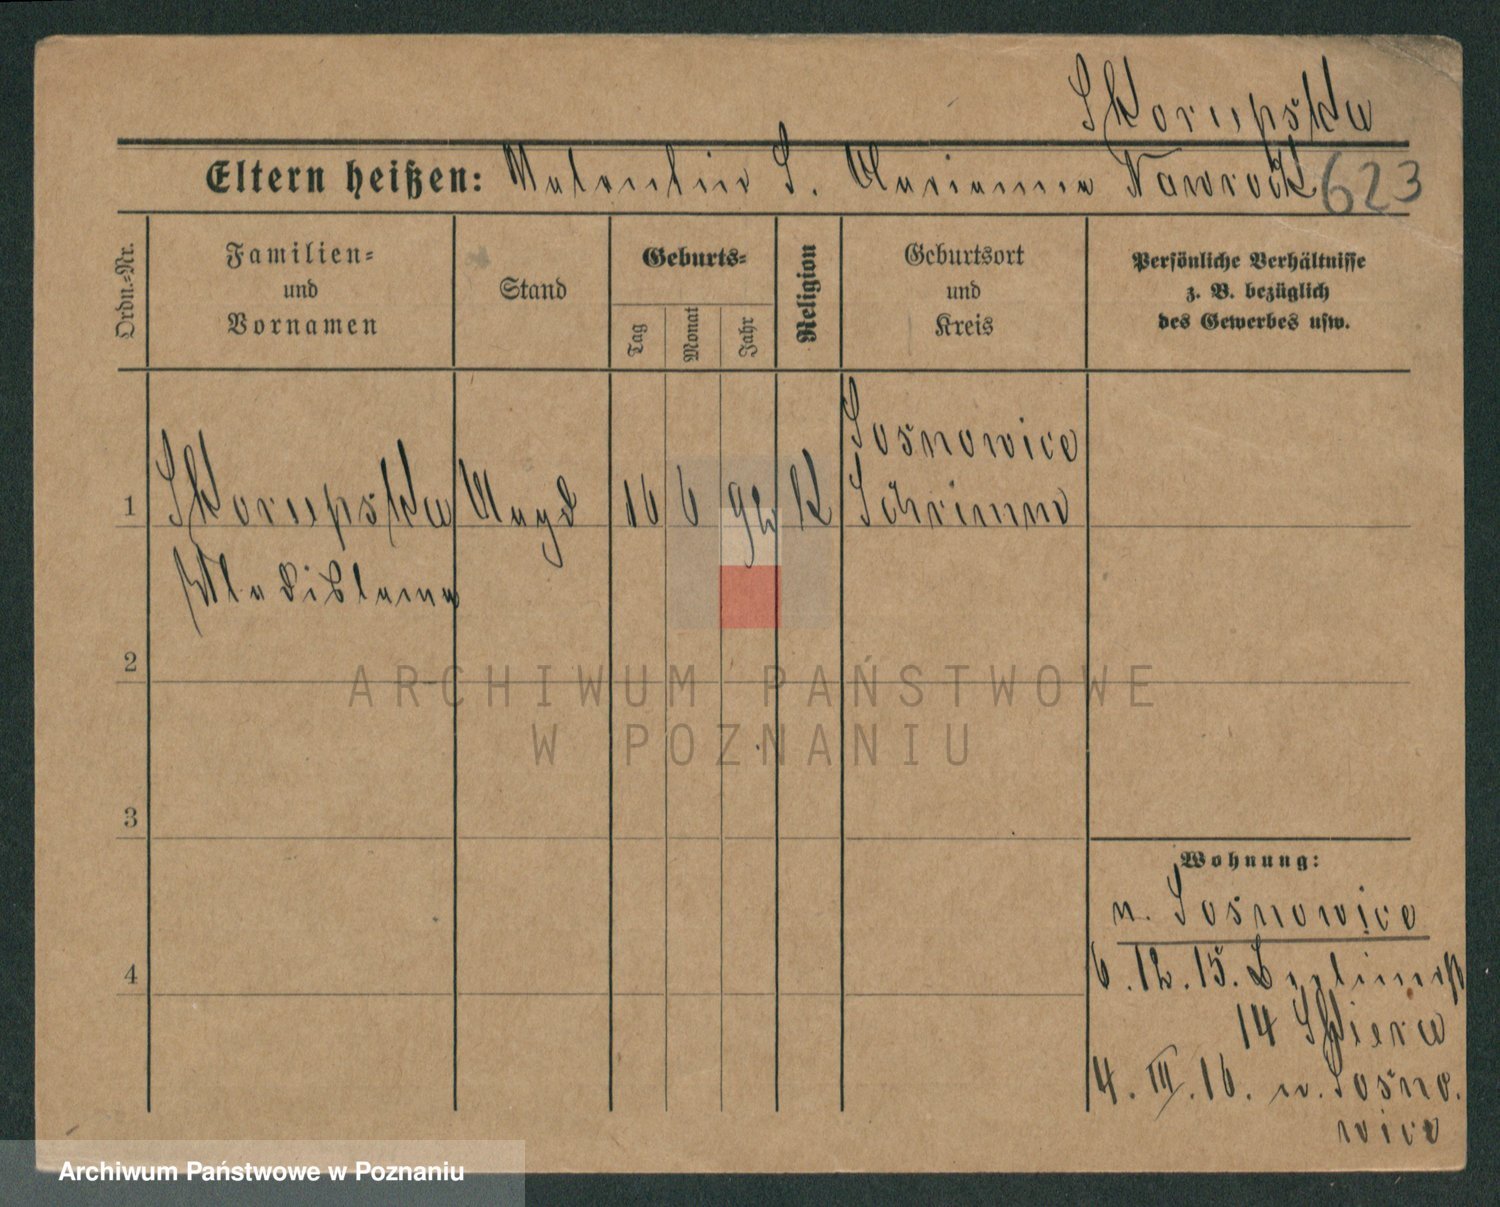 Skorupska
Eltern heißen: Valentin S. Marianna Nawrocki 623
Ordn.-Nr.
Familien-
und
Vornamen
Stand
Geburts-
Tag
Monat
Jahr
Religion
Geburtsort
und
Kreis
Persönliche Verhältnisse
z. B. bezüglich
des Gewerbes usw.
Sosnowice
1 Skorupska Magd 16 6 92 K Schrimm
Wladislawa
2
ARCHIWUM PAŃSTWOWE
W POZNANIU
3
Wohnung:
n. Sosnowice
4
6.12.15. Berlinerst
14
4. III. 16. n. Sosno.
wice
Archiwum Państwowe w Poznaniu